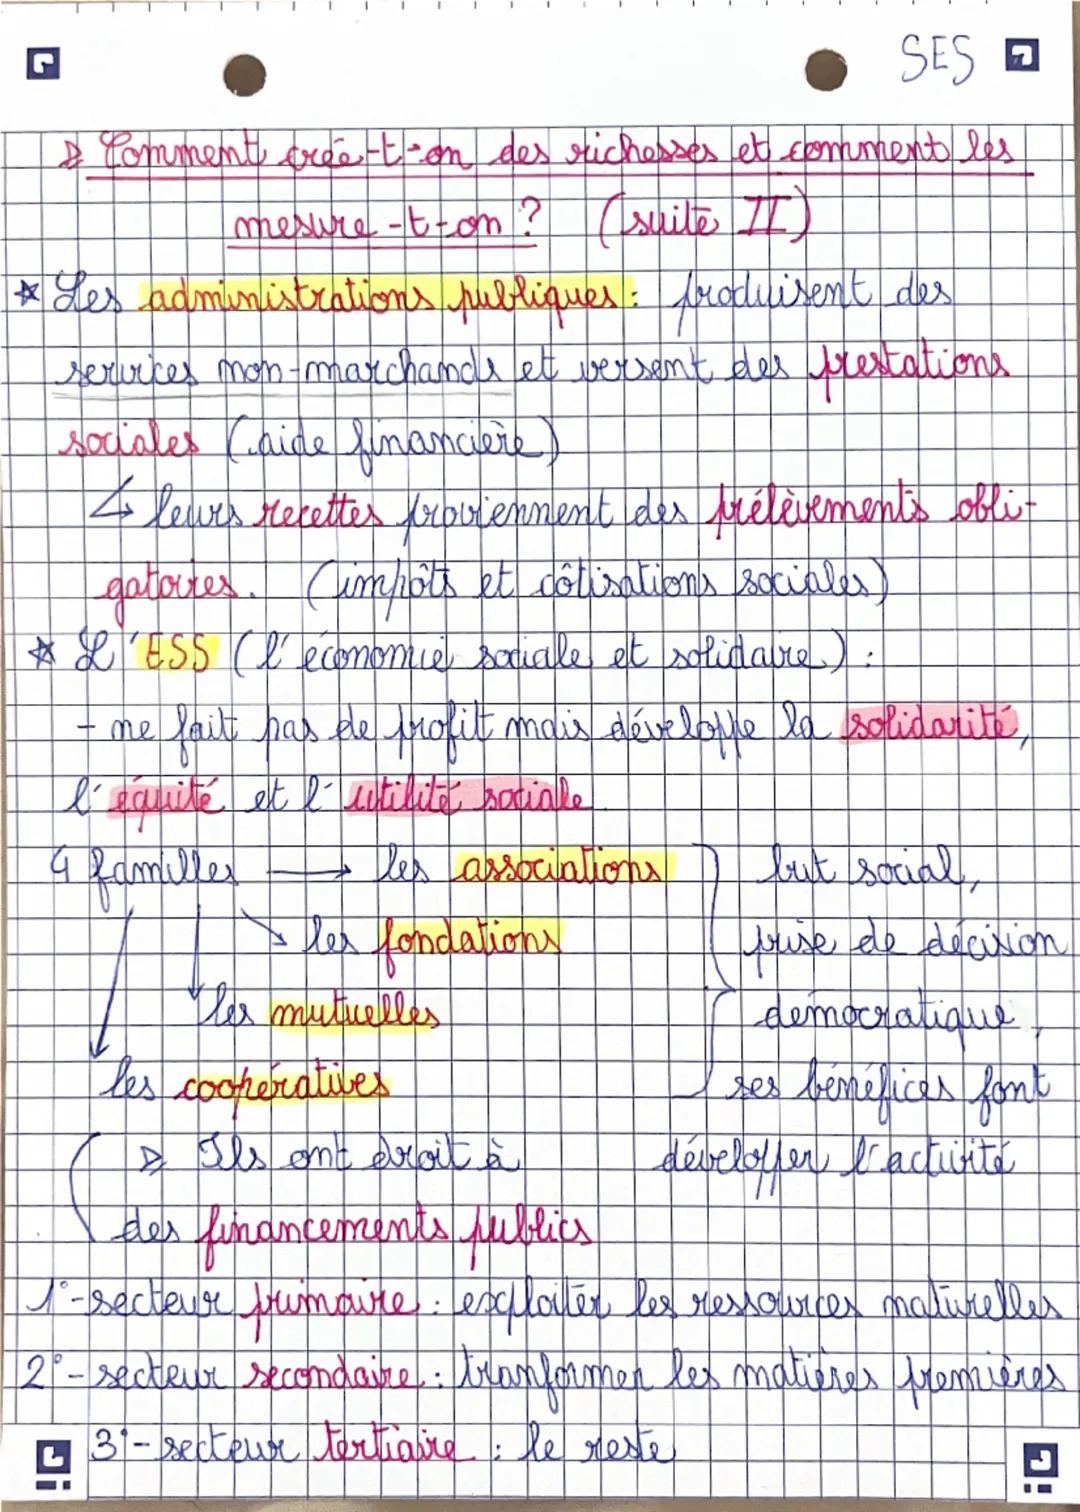 SES
Comment crée-t-on des richesses et comment les
mesure-t-on ? (suite II)
☆ Les administrations publiques : produisent des
services non-marchands et versent des prestations
sociales (aide financière)
↳ leurs recettes proviennent des prélèvements obli-
gatoires. (impôts et côtisations sociales)
☆ L'ESS (l'économie sociale et solidaire) :
- ne fait pas de profit mais développe la solidarité,
l'équité et l'utilité sociale
4 familles → les associations } but social,
les fondations prise de décision
les mutuelles démocratique,
les coopératives ses bénéfices font
▷ Ils ont droit à développer l'activité
des financements publics
1°-secteur primaire : exploiter les ressources naturelles
2°-secteur secondaire : tranformer les matières premières
3°-secteur tertiaire : le reste